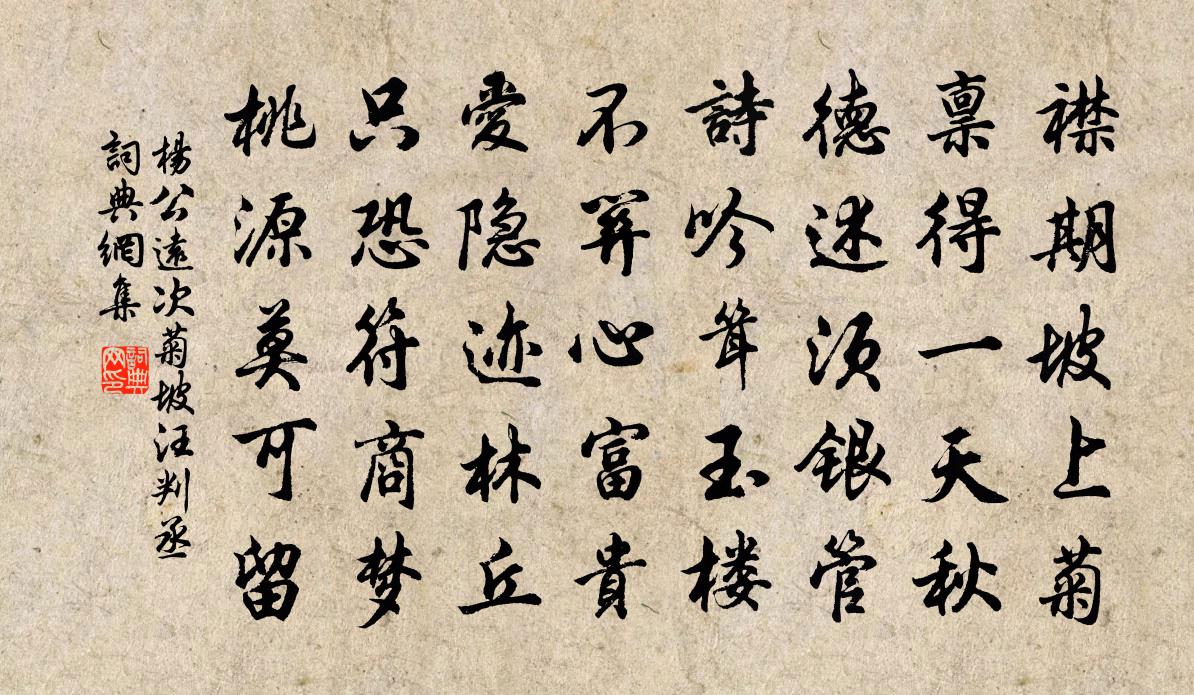 襟期坡上菊
稟得一天秋
德述須銀管
詩吟耸玉楼
不關心富貴
愛隐迹林丘
只恐符商梦
桃源莫可留
楊公遠次菊坡汪判丞
詞典網集
詞典网印